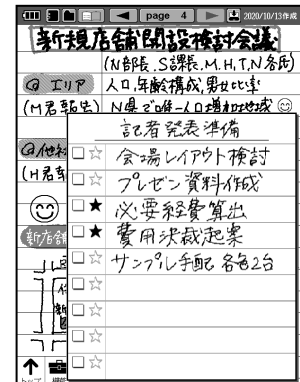 page 4 2020/10/13作成
新規店舗開設検討会議
(N部長、S課長、M、H、T、N各氏)
エリア 人口、年齢構成、男女比率
(M君報告) N県で唯一人口増加地域
記者発表準備
会場レイアウト検討
プレゼン資料作成
必要経費算出
費用決裁起案
サンプル手配 各色2台
新店舗